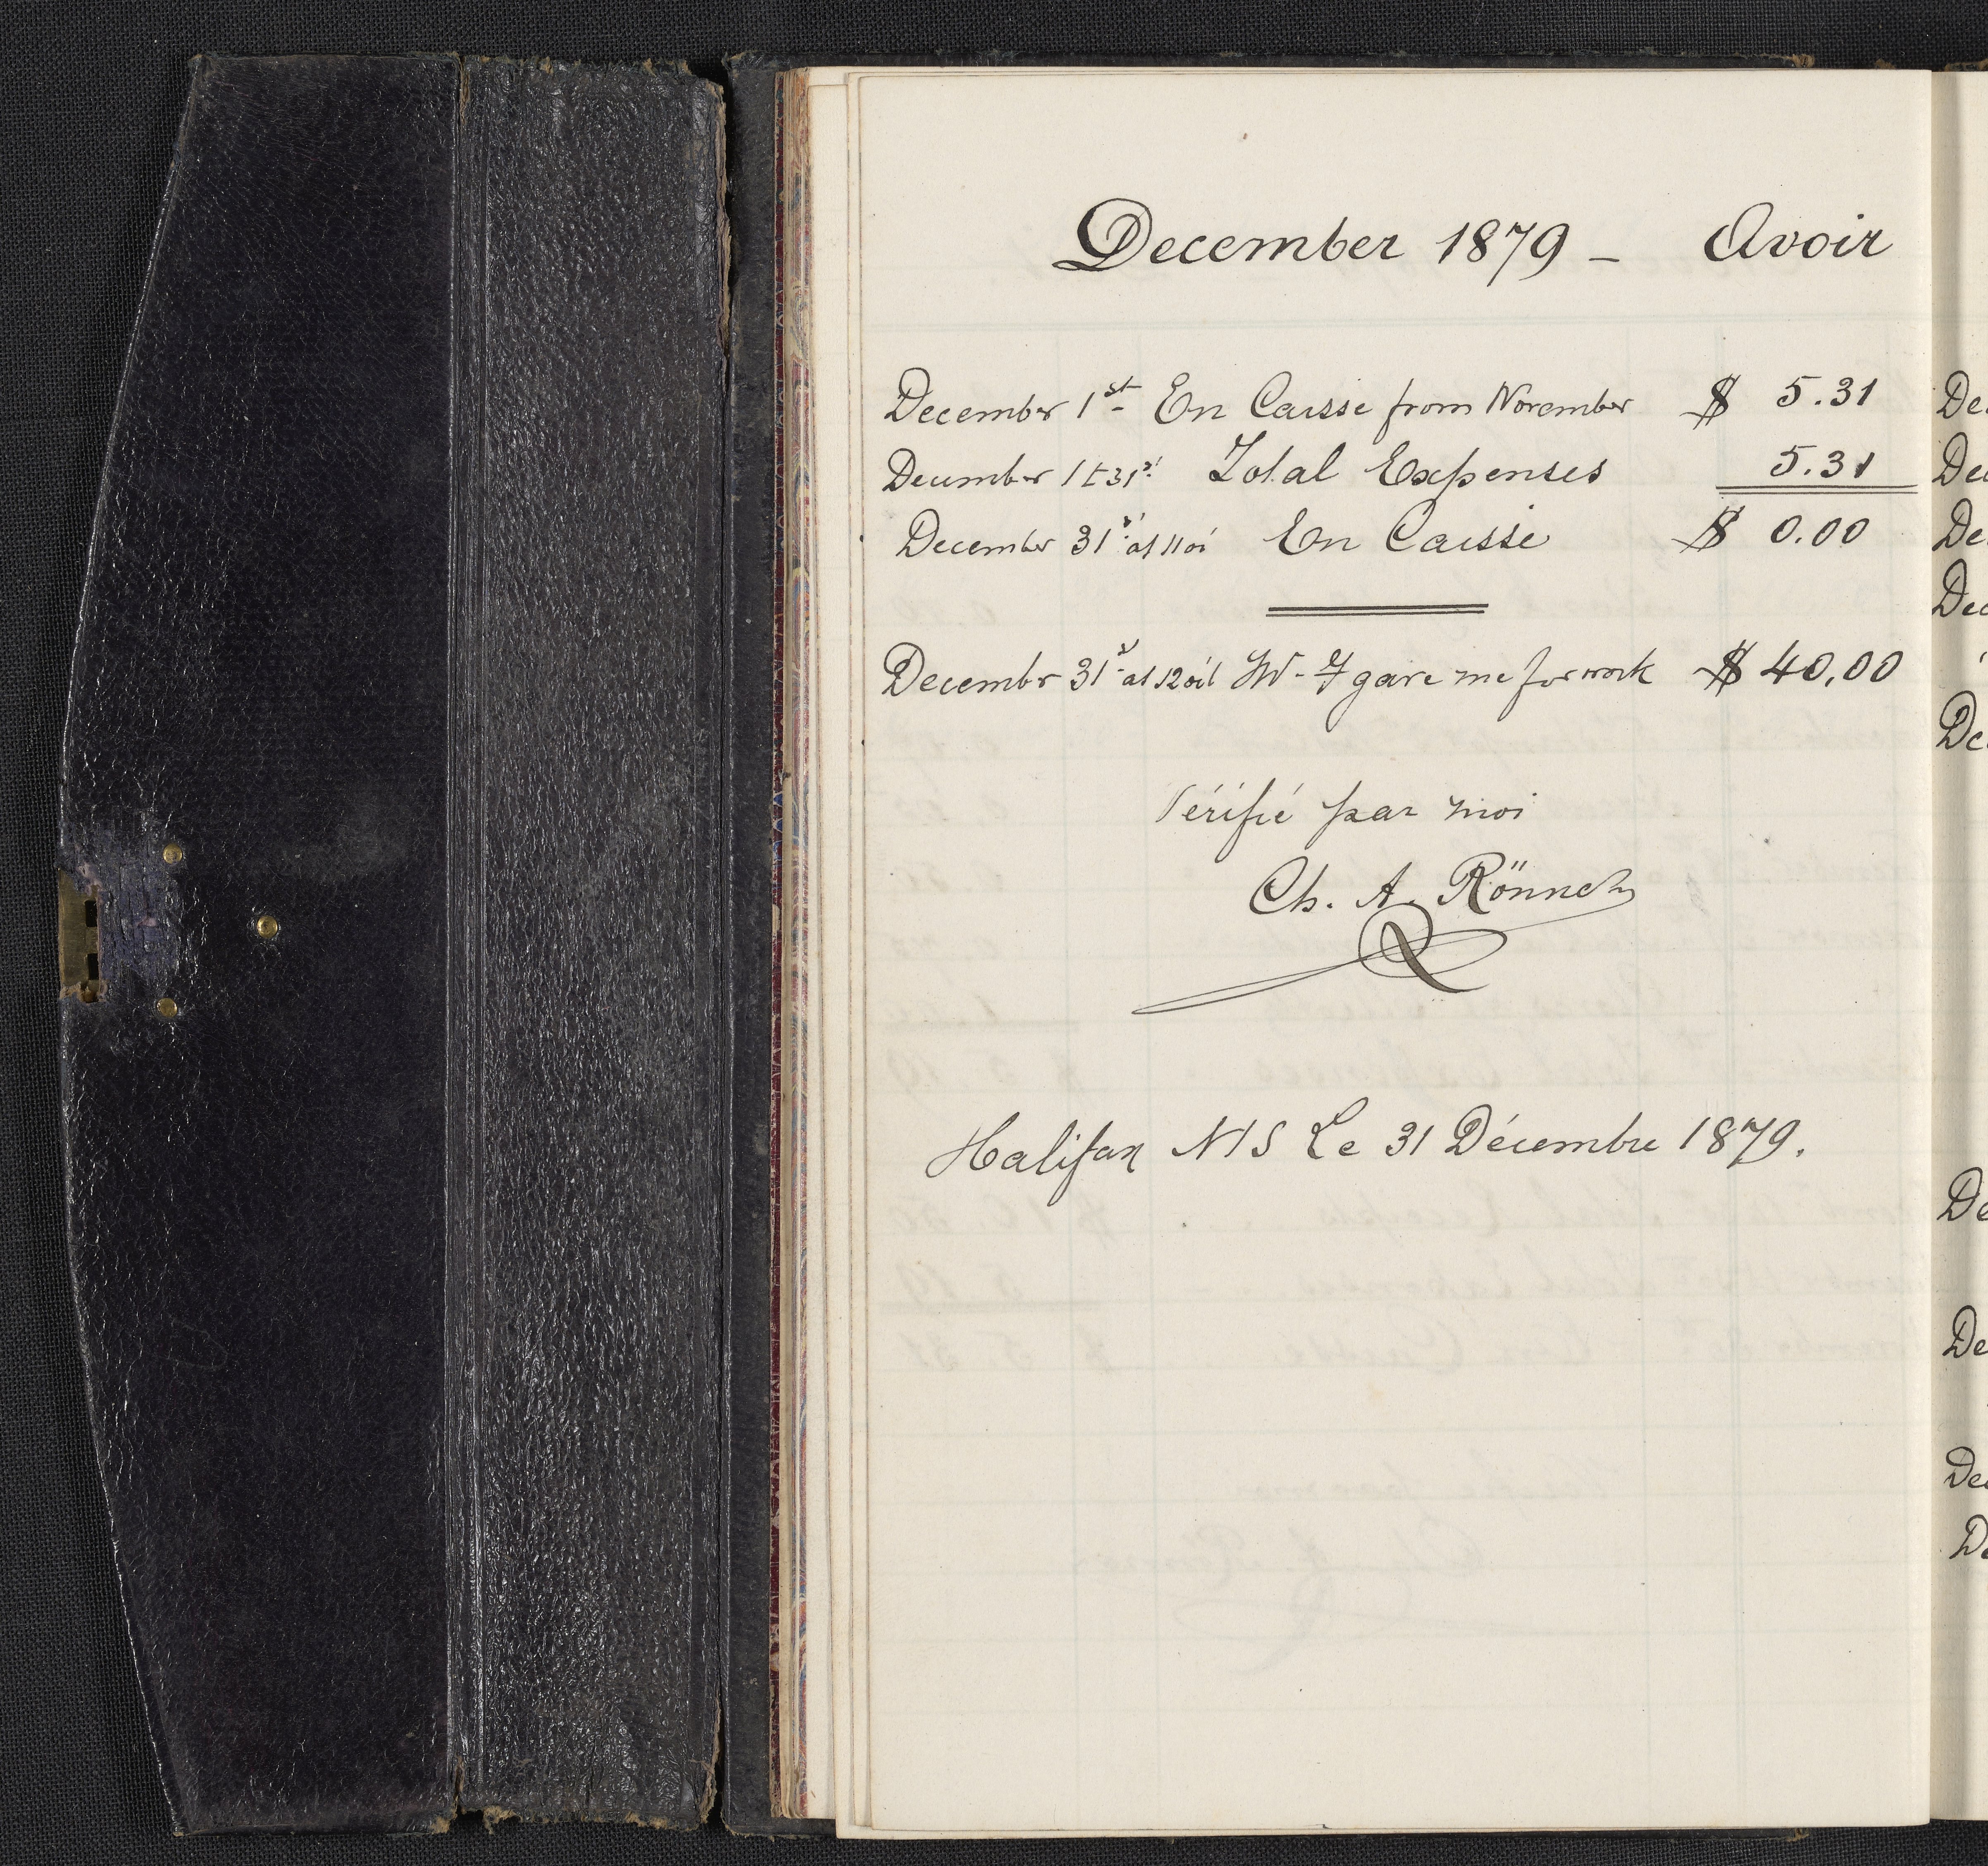 December 1879 - Avoir
December 1st En Caisse from November $ 5.31
December 1 t 31st Total Expenses 5.31
December 31st at 11 o' En Caisse $ 0.00
December 31st at 12 o'cl gave me for work $ 40.00
Vérifié par moi
Ch. A. Rönne
Halifax N/S Le 31 Décembre 1879.
De
De
De
Dec
De
De
De
De
De